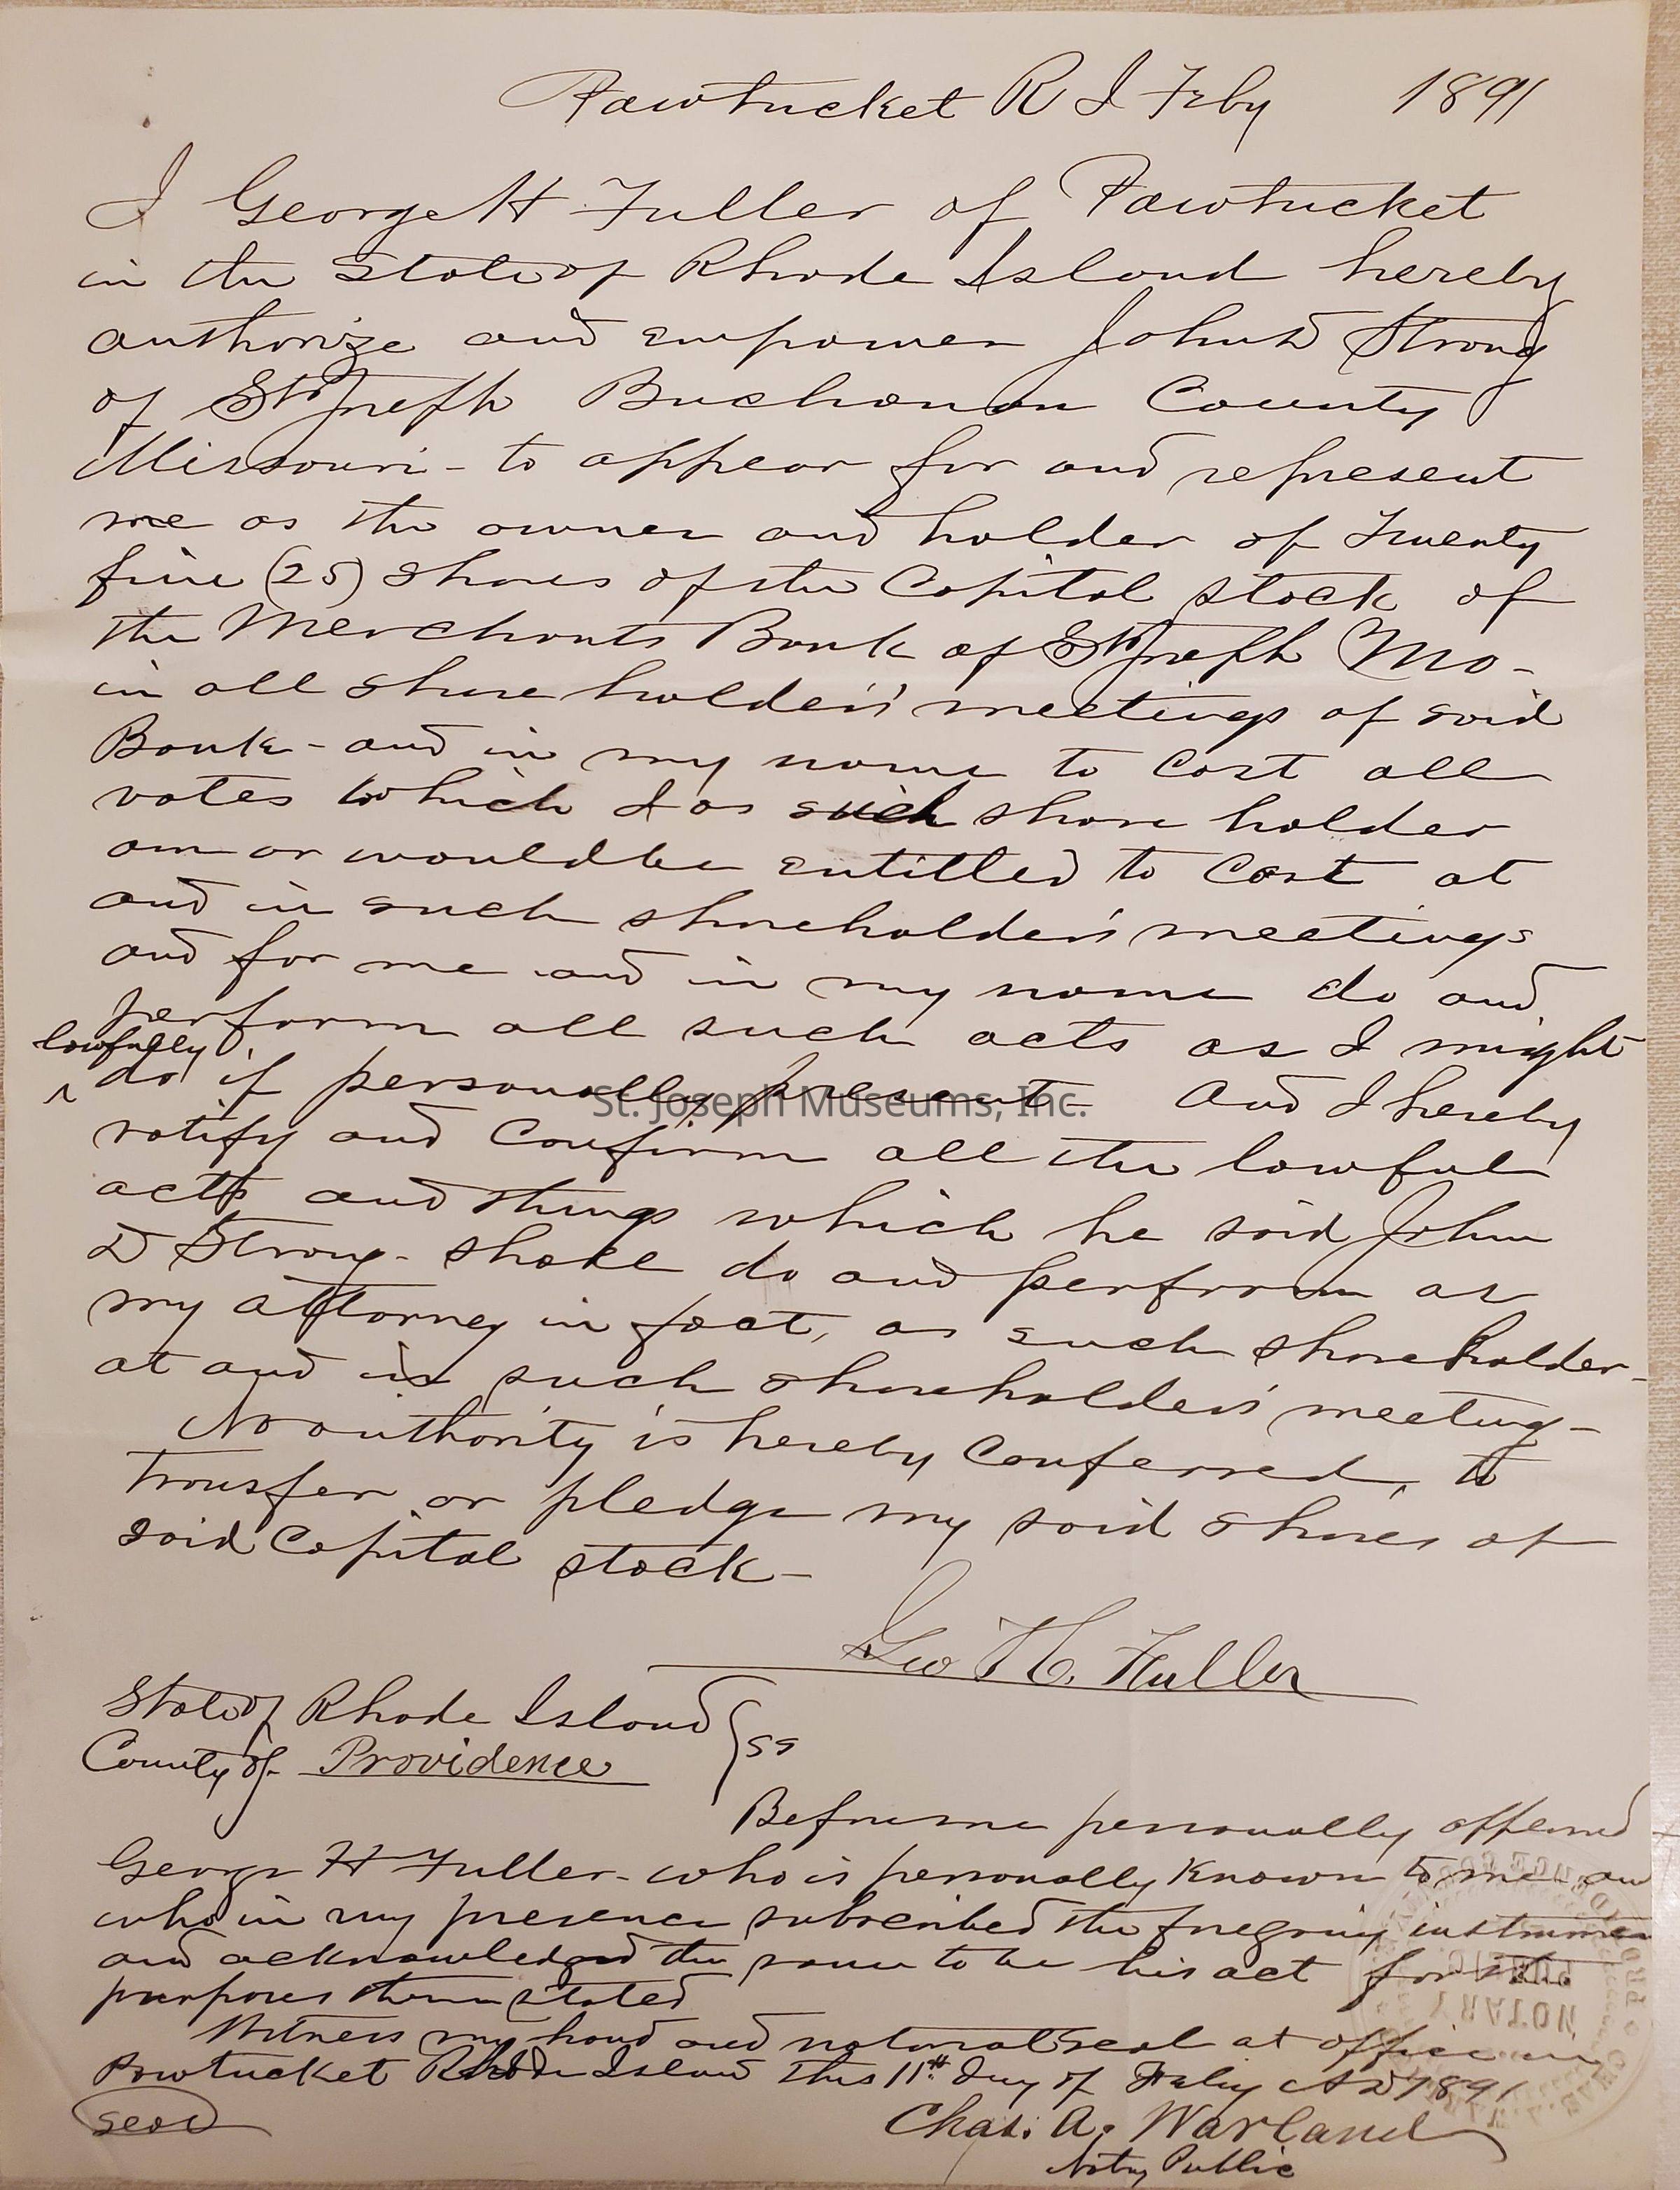 Pawtucket R I Feby 1891
I George H Fuller of Pawtucket
in the State of Rhode Island hereby
authorize and empower John D Strong
of St Joseph Buchanan County
Missouri - to appear for and represent
me as the owner and holder of Twenty
five (25) shares of the Capital stock of
the Merchants Bank of St Joseph Mo -
in all share holders' meetings of said
Bank - and in my name to cast all
votes which I as such share holder
am or would be entitled to cast at
and in such shareholders' meetings
and for me and in my name do and
perform all such acts as I might
lawfully
^ do if personally present - And I hereby
St. Joseph Museums, Inc.
ratify and confirm all the lawful
acts and things which he said John
D Strong - shall do and perform as
my attorney in fact, as such shareholder -
at and in such shareholders' meeting -
No authority is hereby conferred, to
transfer or pledge my said shares of
said Capital stock -
Geo H. Fuller
State of Rhode Island } ss
County of Providence
Before me personally appeared
George H Fuller - who is personally known to me and
who in my presence subscribed the foregoing instrument
and acknowledged the same to be his act for the
purposes therein stated
Witness my hand and notarial seal at office in
Pawtucket Rhode Island this 11th day of Feby AD 1891
seal
Chas. A. Warland
Notry Public
NOTARY
PUBLIC